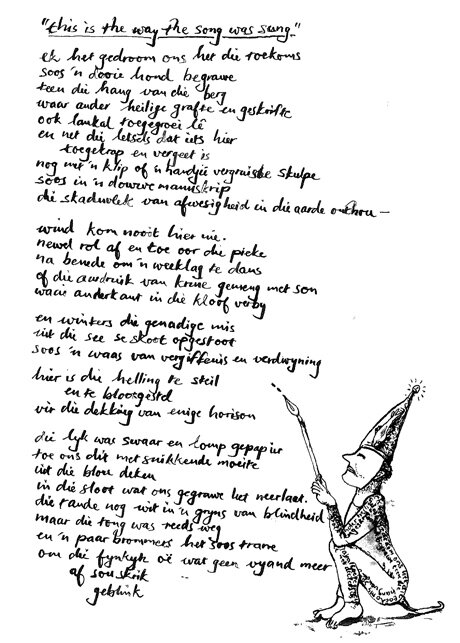 "this is the way the song was sung."
ek het gedroom ons het die toekoms
soos 'n dooie hond begrawe
teen die hang van die berg
waar ander heilige grafte en geskrifte
ook lankal toegegroei lê
en net die letsels dat iets hier
toegekrap en vergeet is
nog met 'n klip of 'n handjie vergruisde skulpe
soos in 'n dowwe manuskrip
die skaduvlek van afwesigheid in die aarde onthou —
wind kom nooit hier nie.
newel rol af en toe oor die pieke
na benede om 'n weeklag te dans
of die aardruik van kruie gemeng met son
waai anderkant in die kloof verby
en winters die genadige mis
uit die see se skoot opgestoot
soos 'n waas van vergiffenis en verdwyning
hier is die helling te steil
en te blootgestel
vir die dekking van enige horison
die lyk was swaar en lomp gepapier
toe ons dit met snikkende moeite
uit die blou deken
in die sloot wat ons gegrawe het neerlaat.
die tande nog wit in 'n gryns van blindheid
maar die tong was reeds weg
en 'n paar brommers het soos trane
om die fynkyk oë wat geen vyand meer
af sou skrik
geblink